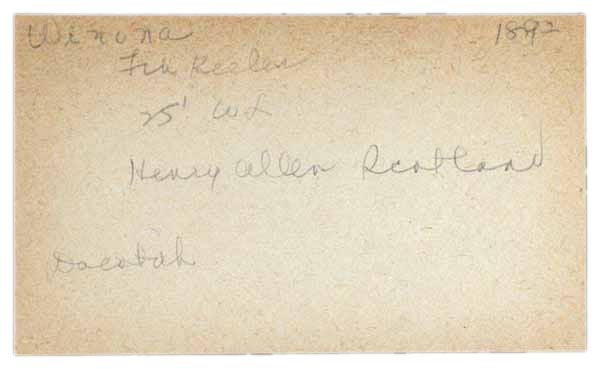 Winona 1892
Fin Keeler
25' WL
Henry Allen Scotland
Dacotah